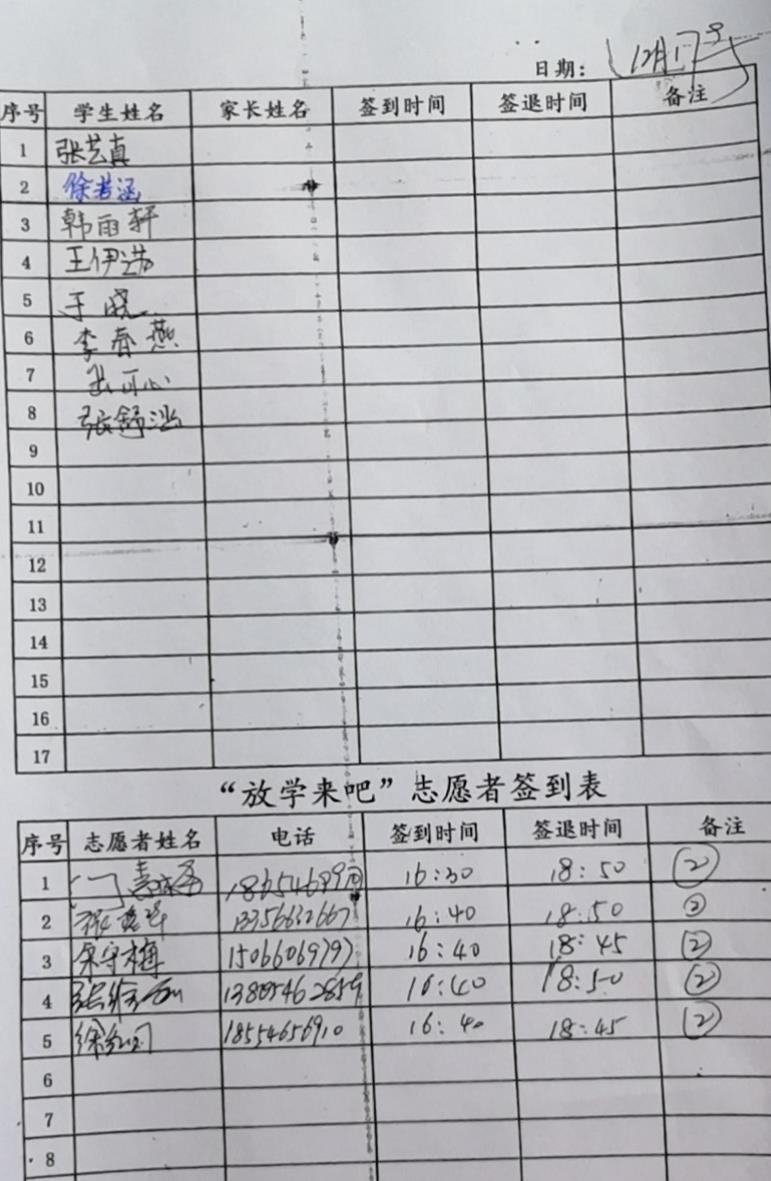 日期: 12月17号
序号 学生姓名 家长姓名 签到时间 签退时间 备注
1 张艺真
2 徐若涵
3 韩雨轩
4 王伊诺
5 于晓
6 李春燕
7 可心
8 张舒涵
9
10
11
12
13
14
15
16
17
“放学来吧”志愿者签到表
序号 志愿者姓名 电话 签到时间 签退时间 备注
1 16:30 18:50 ②
2 13356632667 16:40 18:50 ②
3 守梅 16:40 18:45 ②
4 16:40 18:50 ②
5 18554656910 16:40 18:45 ②
6
7
8